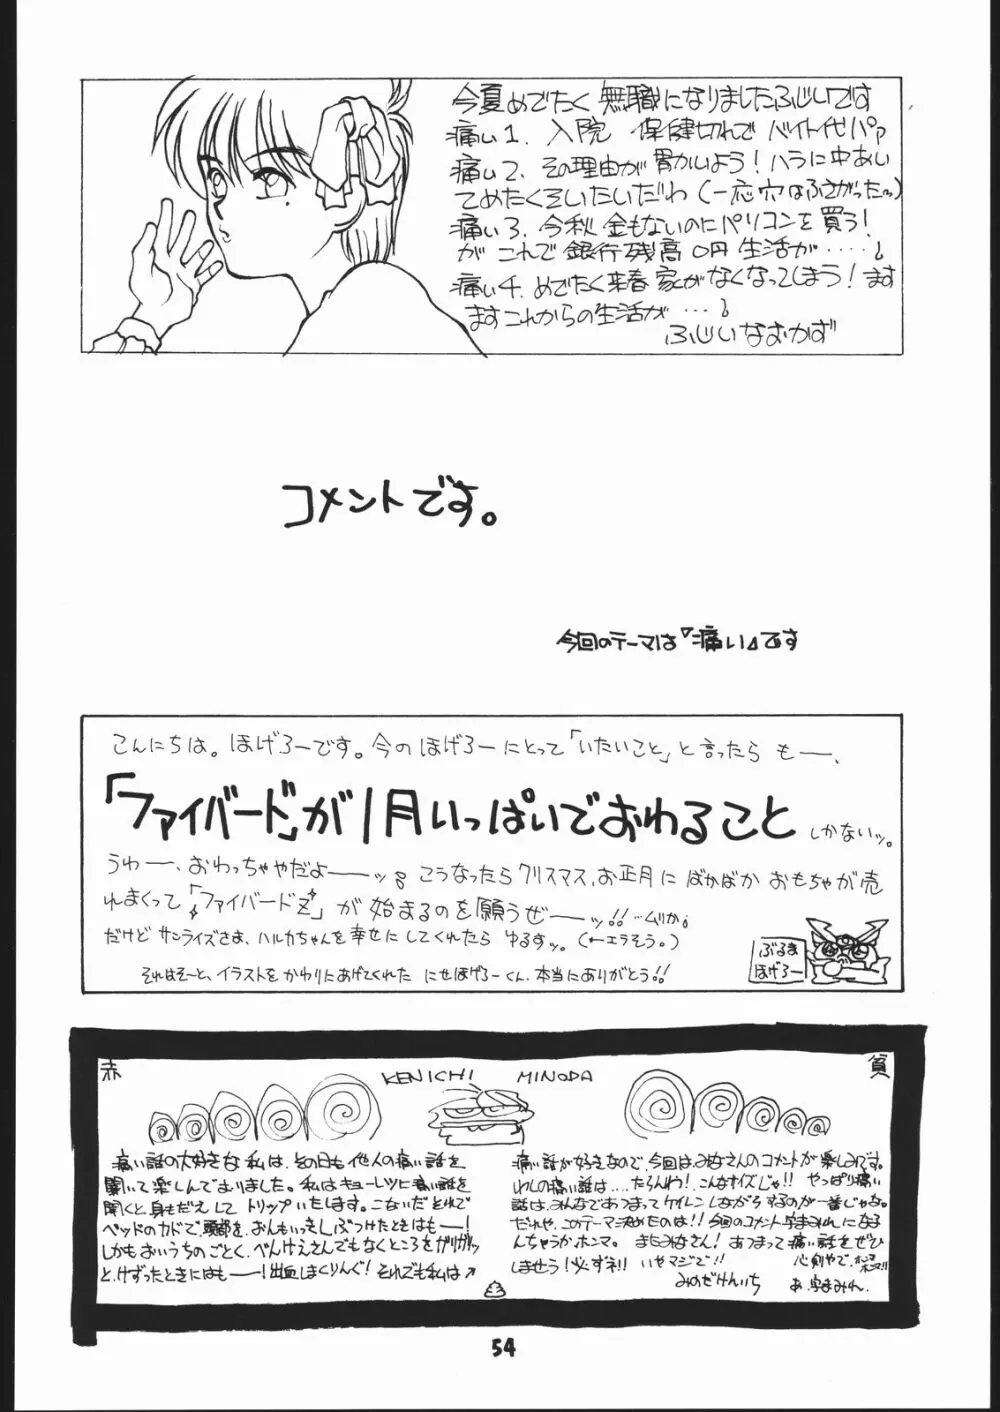 今夏めでたく無職になりましたふじいです
痛い1. 入院 保健切れで バイト代パァ
痛い2. その理由が胃かいよう！ハラに中あい
てめたくそいたいだわ（一応穴はふさがった〜）
痛い3. 今秋 金もないのにパソコンを買う！
が これで銀行残高0円 生活が・・・・・
痛い4. めでたく来春 家がなくなってしまう！ます
ますこれからの生活が・・・
ふじいなおかず
コメントです。
今回のテーマは『痛い』です
こんにちは。ほげろーです。今のほげろーにとって「いたいこと」と言ったら もーー、
「ファイバード」が1月いっぱいでおわること しかないッ。
うわーー、おわっちゃやだよーーーッ こうなったらクリスマス、お正月に ばかばか おもちゃが売
れまくって「ファイバードZ」が 始まるのを願うぜーーッ!! …ムリか。
だけど サンライズさま、ハルカちゃんを幸せに してくれたら ゆるすッ。（←エラそう。）
それはそーと、イラストを かわりにあげてくれた にせほげろーくん、本当にありがとう!!
ぶるま
ほげろー
赤 KENICHI MINODA 貧
痛い話の大好きな私は、その日も他人の痛い話を
聞いて楽しんでまいりました。私はキューレツに痛い話を
聞くと、身もだえして トリップいたします。こないだ とれで
ベッドのカドで、頭部を、おんもいっきし、ぶつけたときはもーー！
しかも おいうちのごとく、べんけえさんでもなくところをガリガリッ
と、けずったときにはもーー！出血しまくりんぐ！それでも私は↗
痛い話が好きなので、今回はみなさんのコメントが楽しみです。
わしの痛い話は....たらんわ！こんなオイズじゃ!! やっぱり痛い
話は、みんなであつまって ケイレンしながらするのが一番じゃな。
だれや、このテーマ決めたのは!! 今回のコメント 字まみれになる
んちゃうか、ホンマ。 またみなさん！ あつまって 痛い話を ぜひ
しませう！必ずネ!! いやマジで!! 心剣やで、ホンマホンマ!!
みのだけんいち あ、字まみれ。
54